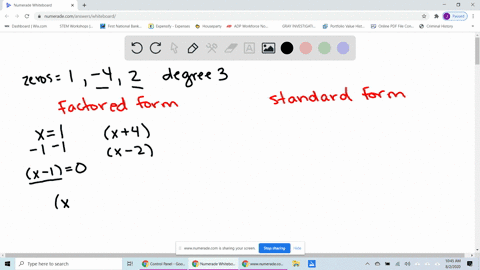 Numerade Whiteboard
numerade.com/answers/whiteboard/
Dashboard | Wix.com
STEM Workshops |
First National Bank...
Expensify - Expenses
Houseparty
ADP Workforce No...
Portfolio Value Hist...
Online PDF File Con...
Criminal History
zeros = 1, -4, 2 degree 3
factored form
standard form
x = 1 (x+4)
-1 -1 (x-2)
(x-1) = 0
(x
numerade.com is sharing your screen.
Stop sharing
Hide
Type here to search
Control Panel - Goo...
Numerade Whiteboard...
www.numerade.com is...
10:41 AM
6/2/2020